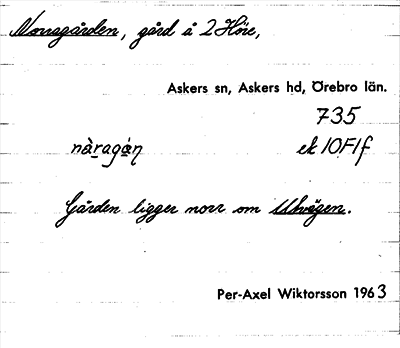 Norragården, gård å 2 Höre,
Askers sn, Askers hd, Örebro län.
735
nàragán̥ ek 10F1f
Gården ligger norr om
Per-Axel Wiktorsson 1963